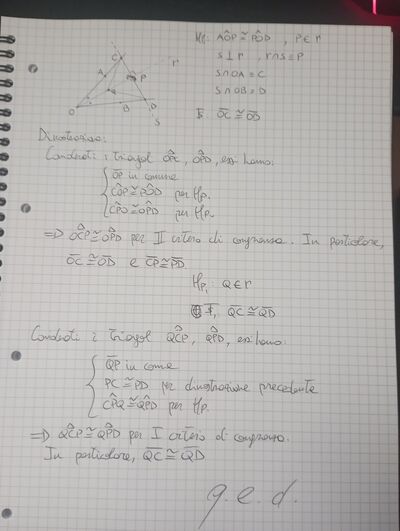 Hp: AÔP ≅ PÔD , P ∈ r
S ⊥ r , r∩s = P
S ∩ OA = C
S ∩ OB = D
OC ≅ OD
C r
A P
Q
O B D
S
Dimostrazione:
Considerati i triangoli OPC, OPD, essi hanno:
OP in comune
CÔP ≅ PÔD per Hp.
CPO ≅ OPD per Hp.
=> OCP ≅ OPD per II criterio di congruenza. In particolare,
OC ≅ OD e CP ≅ PD.
Hp₁: Q ∈ r
QC ≅ QD
Considerati i triangoli QCP, QPD, essi hanno:
QP in comune
PC ≅ PD per dimostrazione precedente
CPQ ≅ QPD per Hp.
=> QCP ≅ QPD per I criterio di congruenza.
In particolare, QC ≅ QD
q.e.d.